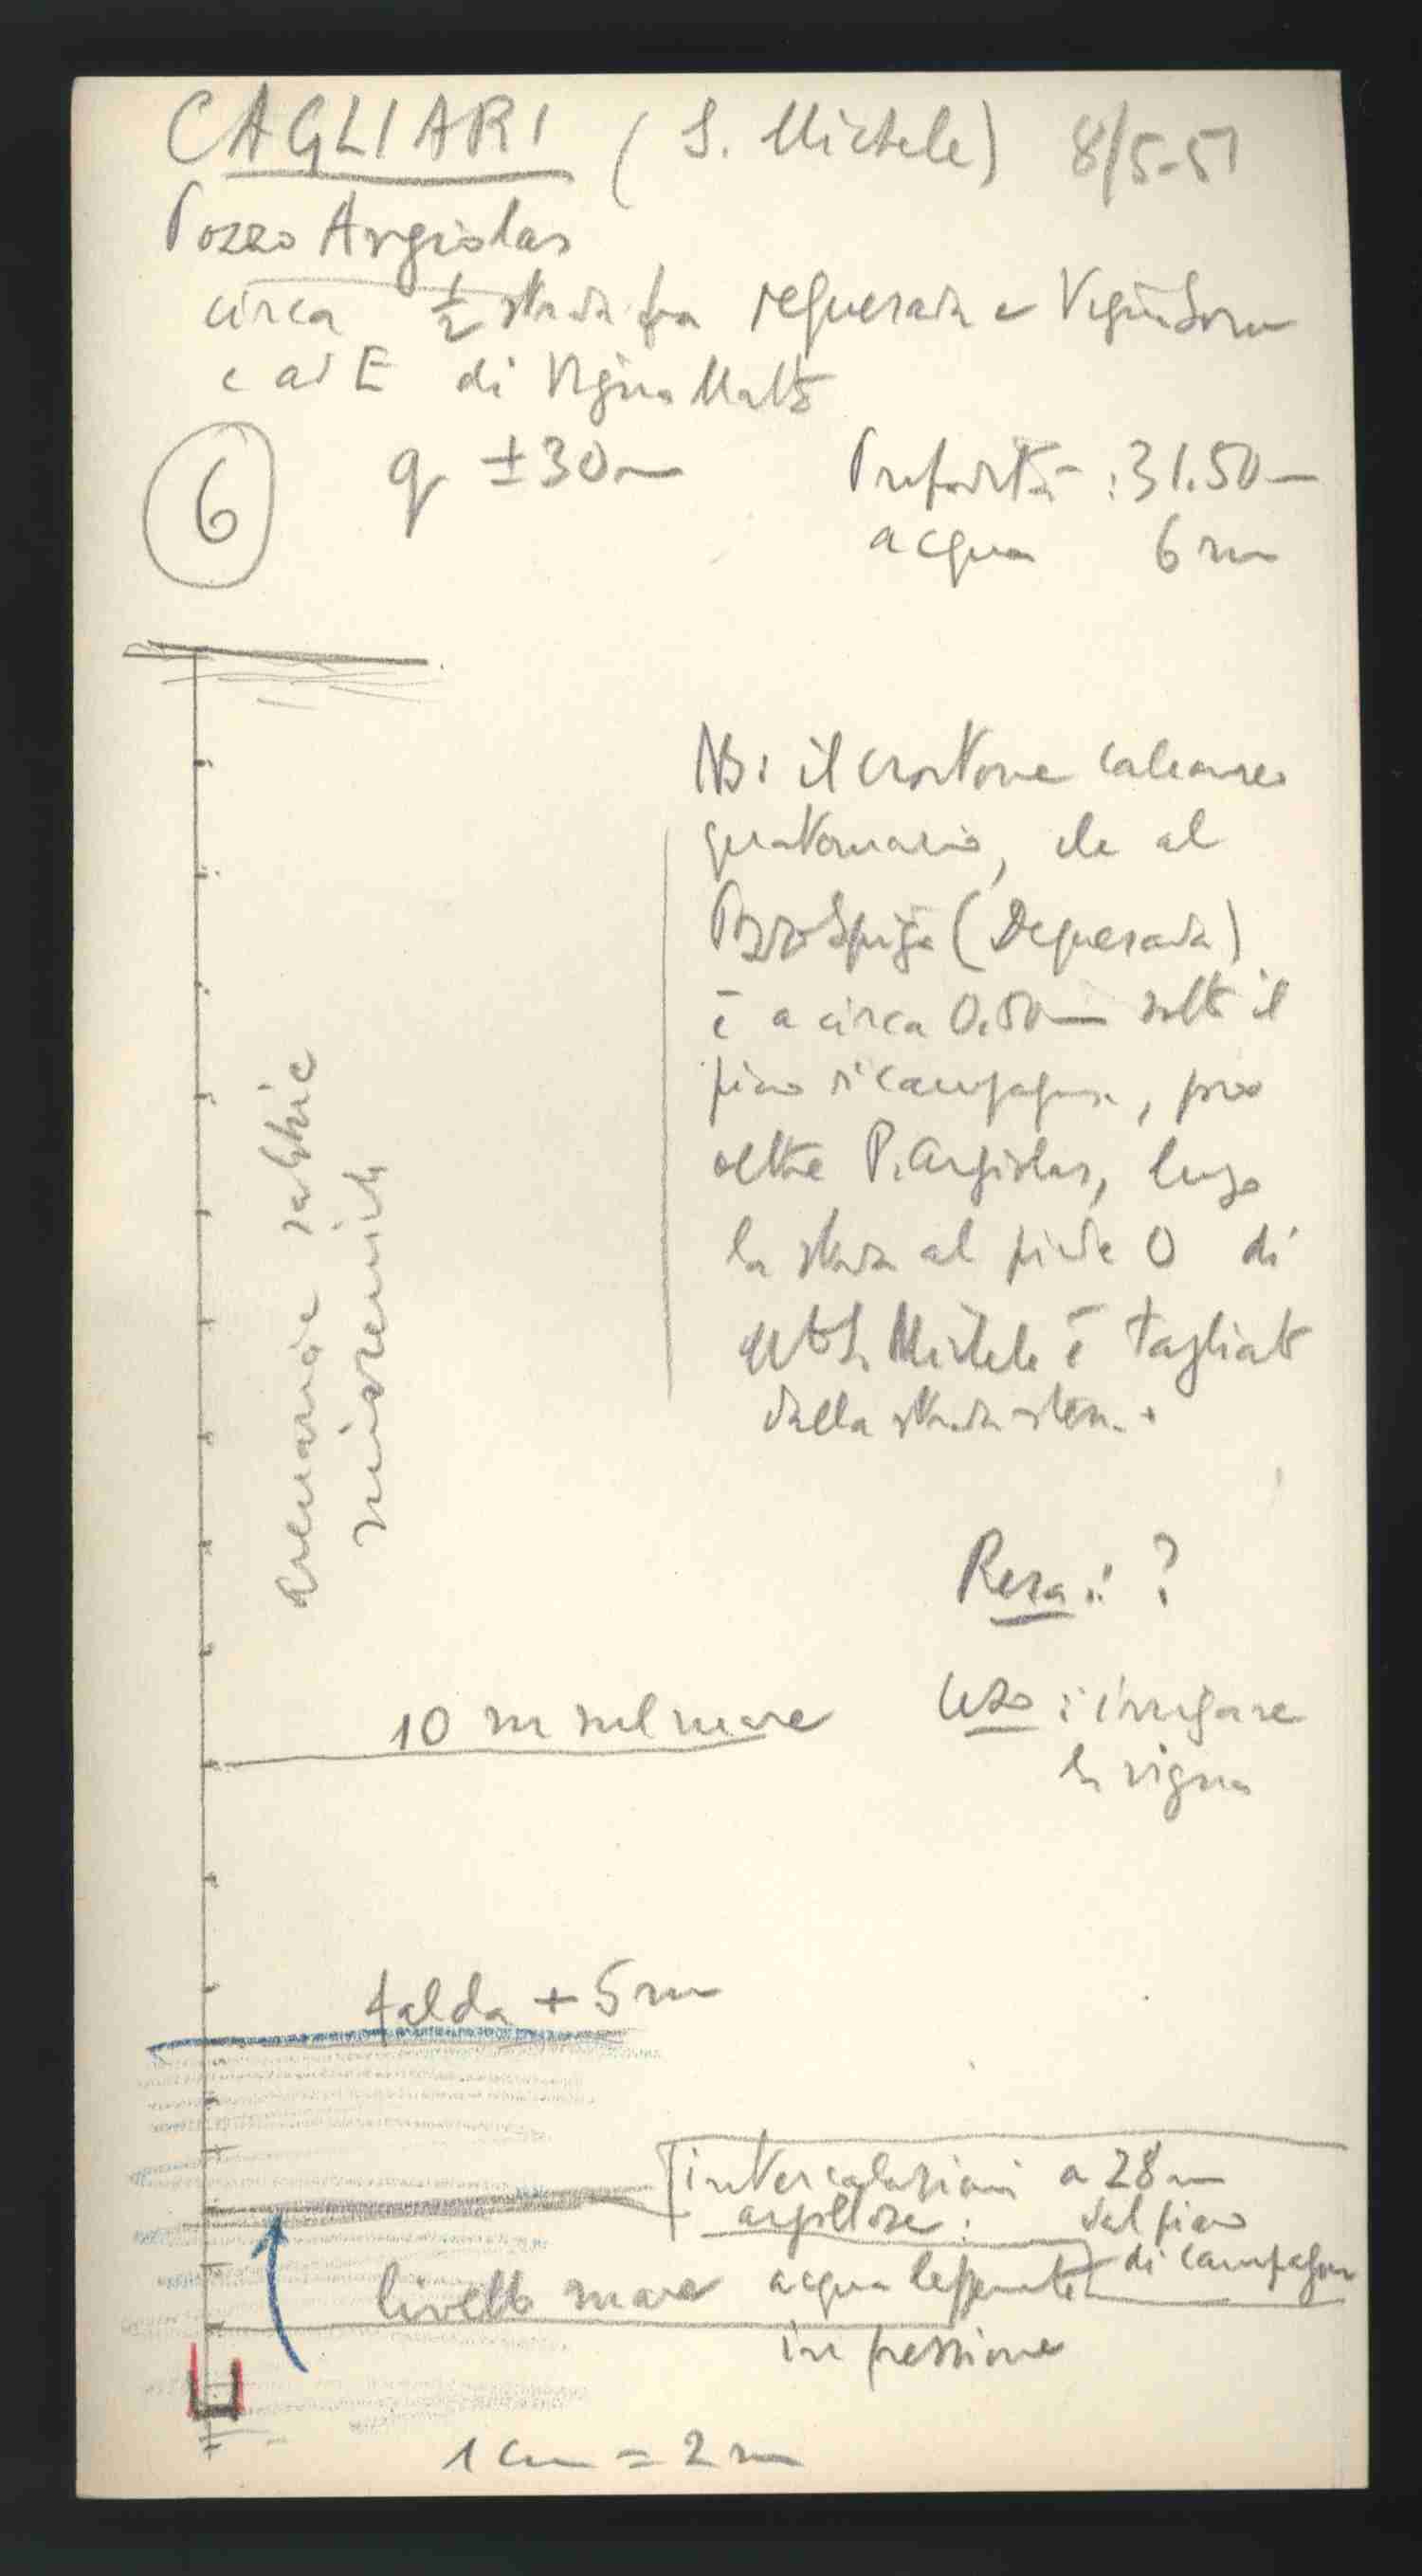 CAGLIARI (S. Michele) 8/5-51
Pozzo Argiolas
circa ½ strada fra e Vigna
e ad E di Vigna Matta
6 q ±30m Profondità: 31.50m
acqua 6 m
NB: il crostone calcareo
quaternario, che al
Pozzo Spiga (Dequesada)
è a circa 0.50m sotto il
piano di campagna, poco
oltre P. Argiolas, lungo
la strada al piede O di
M. S. Michele è tagliato
dalla strada stessa.
arenarie e sabbie
mioceniche
Resa: ?
Uso: irrigare
la vigna
10 m sul mare
falda + 5 m
intercalazioni a 28 m
argillose: dal piano
di campagna
livello mare acqua leggermente
in pressione
1 cm = 2 m